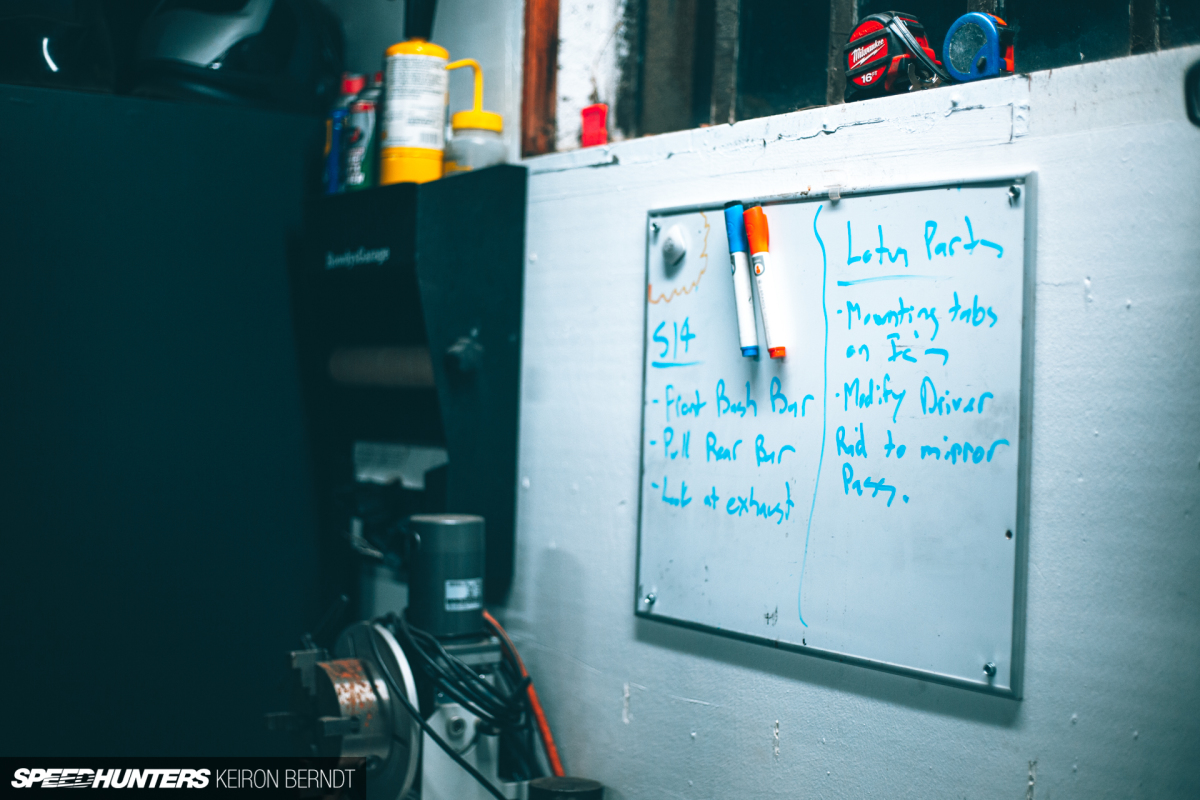 Milwaukee
16FT
S14
- Front Bash Bar
- Pull Rear Bar
- Look at exhaust
Parts
- Mounting tabs
on
- Modify Driver
Rad to mirror
Pass.
SPEEDHUNTERS KEIRON BERNDT